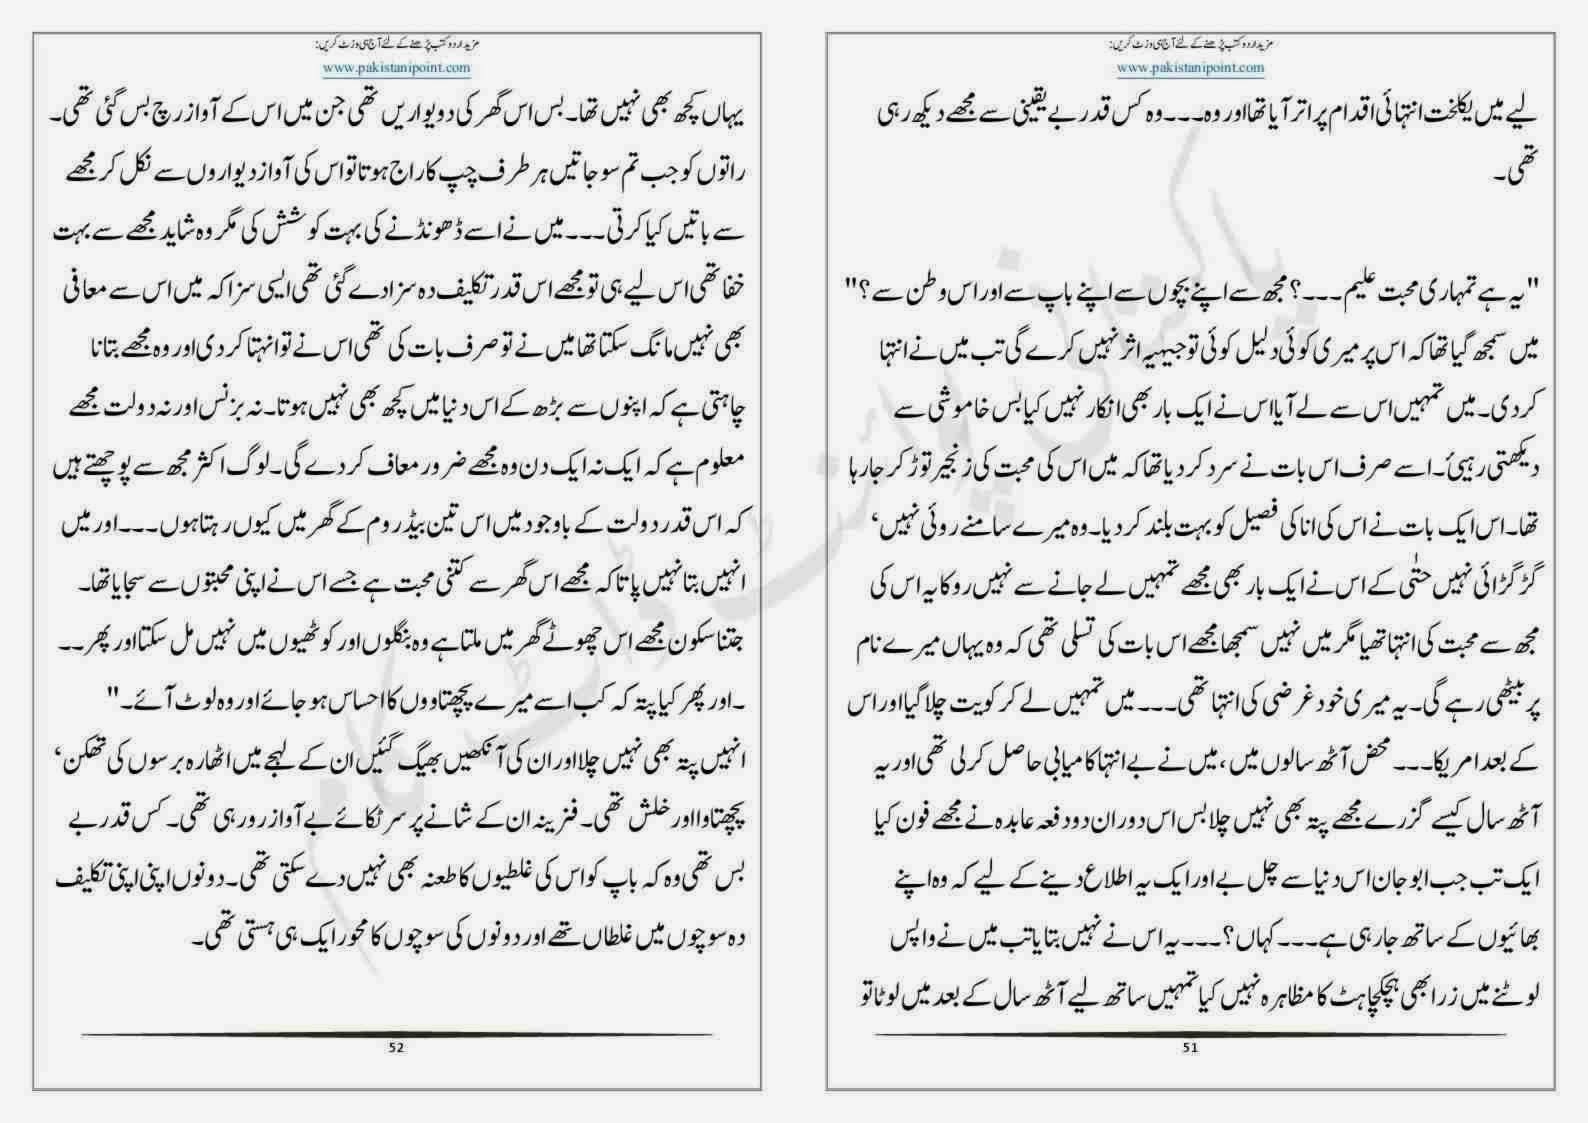 مزید اردو کتب پڑھنے کے لئے آج ہی وزٹ کریں:
www.pakistanipoint.com
لیے میں یکلخت انتہائی اقدام پر اتر آیا تھا اور وہ۔۔۔وہ کس قدر بے یقینی سے مجھے دیکھ رہی
تھی۔
"یہ ہے تمہاری محبت علیم۔۔۔؟ مجھ سے اپنے بچوں سے اپنے باپ سے اور اس وطن سے؟"
میں سمجھ گیا تھا کہ اس پر میری کوئی دلیل کوئی توجیہیہ اثر نہیں کرے گی تب میں نے انتہا
کر دی۔ میں تمہیں اس سے لے آیا اس نے ایک بار بھی انکار نہیں کیا بس خاموشی سے
دیکھتی رہیئ۔ اسے صرف اس بات نے سرد کر دیا تھا کہ میں اس کی محبت کی زنجیر توڑ کر جا رہا
تھا۔ اس ایک بات نے اس کی انا کی فصیل کو بہت بلند کر دیا۔ وہ میرے سامنے روئی نہیں،
گڑگڑائی نہیں حتٰی کے اس نے ایک بار بھی مجھے تمہیں لے جانے سے نہیں روکا یہ اس کی
مجھ سے محبت کی انتہا تھیا مگر میں نہیں سمجھا مجھے اس بات کی تسلی تھی کہ وہ یہاں میرے نام
پر بیٹھی رہے گی۔ یہ میری خود غرضی کی انتہا تھی۔۔۔ میں تمہیں لے کر کویت چلا گیا اور اس
کے بعد امریکا۔۔۔ محض آٹھ سالوں میں، میں نے بے انتہا کامیابی حاصل کر لی تھی اور یہ
آٹھ سال کیسے گزرے مجھے پتہ بھی نہیں چلا بس اس دوران دو دفعہ عابدہ نے مجھے فون کیا
ایک تب جب ابو جان اس دنیا سے چل بے اور ایک یہ اطلاع دینے کے لیے کہ وہ اپنے
بھائیوں کے ساتھ جا رہی ہے۔۔۔ کہاں؟۔۔۔ یہ اس نے نہیں بتایا تب میں نے واپس
لوٹنے میں زرا بھی ہچکچاہٹ کا مظاہرہ نہیں کیا تمہیں ساتھ لیے آٹھ سال کے بعد میں لوٹا تو
51
مزید اردو کتب پڑھنے کے لئے آج ہی وزٹ کریں:
www.pakistanipoint.com
یہاں کچھ بھی نہیں تھا۔ بس اس گھر کی دیواریں تھی جن میں اس کے آواز رچ بس گئی تھی۔
راتوں کو جب تم سو جاتیں ہر طرف چپ کا راج ہوتا تو اس کی آواز دیواروں سے نکل کر مجھے
سے باتیں کیا کرتی۔۔۔ میں نے اسے ڈھونڈنے کی بہت کوشش کی مگر وہ شاید مجھے سے بہت
خفا تھی اس لیے ہی تو مجھے اس قدر تکلیف دہ سزا دے گئی تھی ایسی سزا کہ میں اس سے معافی
بھی نہیں مانگ سکتا تھا میں نے تو صرف بات کی تھی اس نے تو انہتا کر دی اور وہ مجھے بتانا
چاہتی ہے کہ اپنوں سے بڑھ کے اس دنیا میں کچھ بھی نہیں ہوتا۔ نہ بزنس اور نہ دولت مجھے
معلوم ہے کہ ایک نہ ایک دن وہ مجھے ضرور معاف کر دے گی۔ لوگ اکثر مجھ سے پوچھتے ہیں
کہ اس قدر دولت کے باوجود میں اس تین بیڈروم کے گھر میں کیوں رہتا ہوں۔۔۔ اور میں
انہیں بتا نہیں پاتا کہ مجھے اس گھر سے کتنی محبت ہے جسے اس نے اپنی محبتوں سے سجایا تھا۔
جتنا سکون مجھے اس چھوٹے گھر میں ملتا ہے وہ بنگلوں اور کوٹھیوں میں نہیں مل سکتا اور پھر۔۔
۔اور پھر کیا پتہ کہ کب اسے میرے پچھتاووں کا احساس ہو جائے اور وہ لوٹ آئے۔"
انہیں پتہ بھی نہیں چلا اور ان کی آنکھیں بھیگ گئیں ان کے لہجے میں اٹھارہ برسوں کی تھکن،
پچھتاوا اور خلش تھی۔ فنرینہ ان کے شانے پر سر ٹکائے بے آواز رو رہی تھی۔ کس قدر بے
بس تھی وہ کہ باپ کو اس کی غلطیوں کا طعنہ بھی نہیں دے سکتی تھی۔ دونوں اپنی اپنی تکلیف
دہ سوچوں میں غلطاں تھے اور دونوں کی سوچوں کا محور ایک ہی ہستی تھی۔
52
پاکستانی پوائنٹ ڈاٹ کام